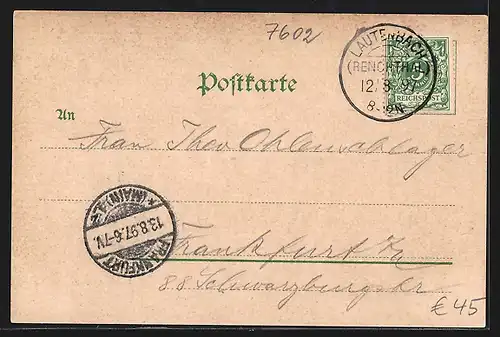 7602
LAUTENBACH
(RENCHTHAL)
12/8 97
8-9N
REICHSPOST
Postkarte
An
Frau Theo Ohlenschlager
FRANKFURT
13.8.97.6-7V.
* (MAIN) 1 *
Frankfurt a/
88 Schwarzburgstr
€ 45